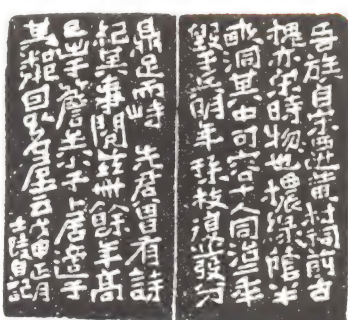 吾族自宋遷黃村祠前古
槐亦宋時物也綠陰半
畝洞其中可容十人同治三年
毀于盜明年孫枝復發分
鼎足而峙 先君曾有詩
紀其事閱卅餘年高
簷小子卜居適于
其鄰因以名屋云戊申正月
士陵自記